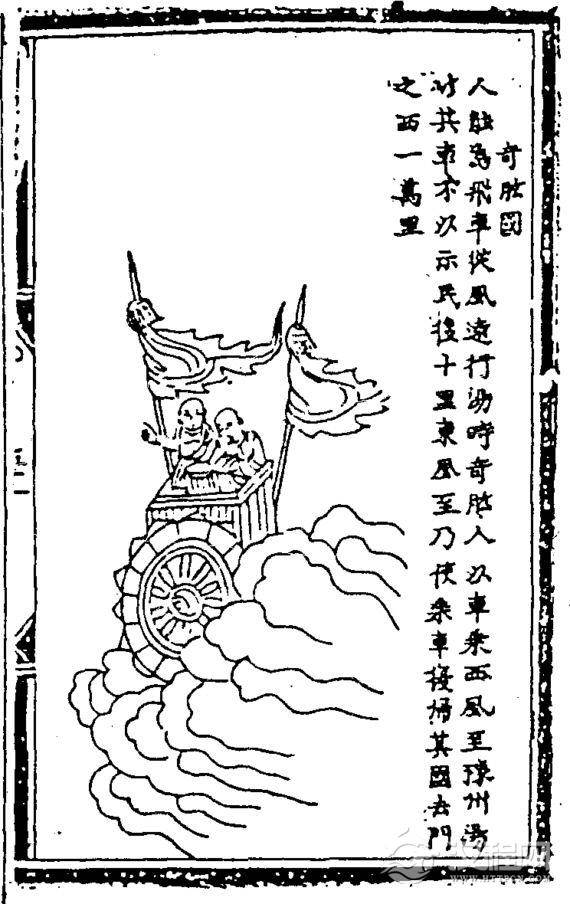 奇肱國
人能為飛車從風遠行湯時奇肱人以車乘西風至豫州湯
其車不以示民後十里東風至乃使乘車復歸其國去門
之西一萬里
汉程网
WWW.HTTPCN.COM